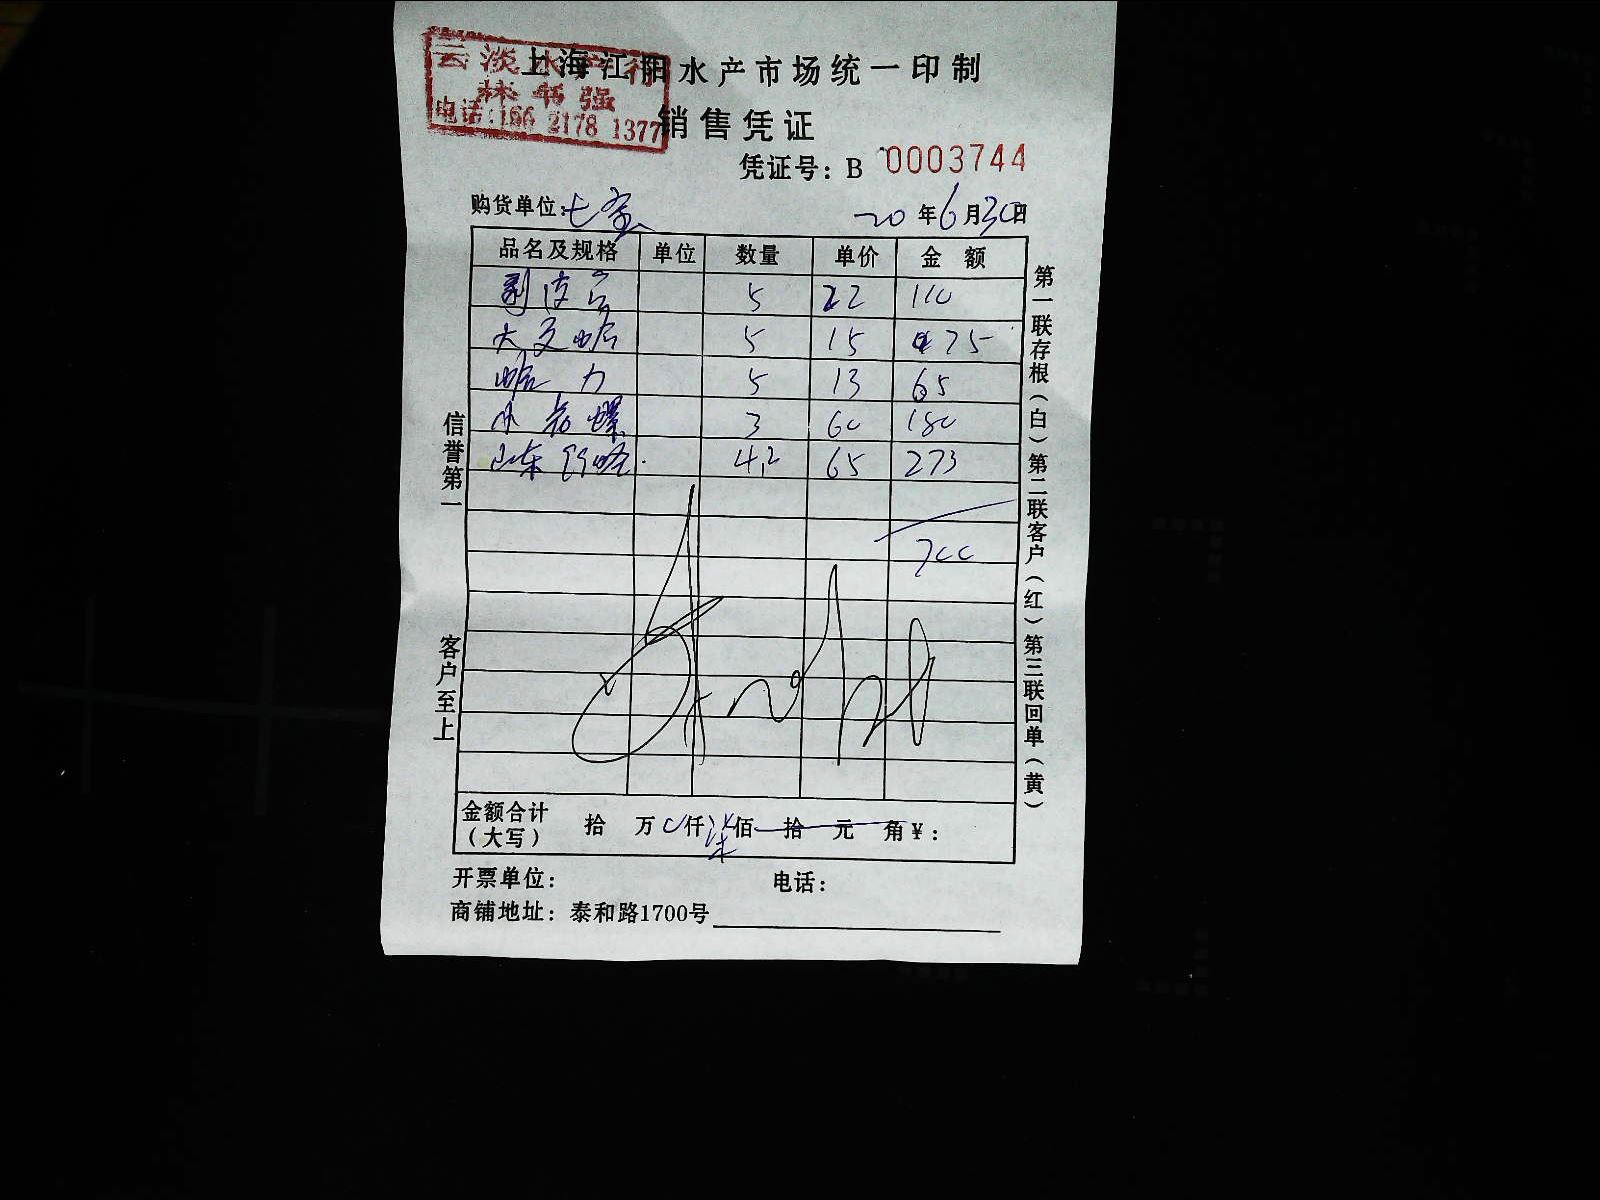 上海江阳水产市场统一印制
云淡水产行
林书强
电话:166 2178 1377
销售凭证
凭证号：B 0003744
购货单位:七宝 20年6月30日
品名及规格 单位 数量 单价 金额
剥皮 5 22 110
大文蛤 5 15 75
蛤力 5 13 65
小 螺 3 60 180
山东 蛤 4.2 65 273
700
金额合计（大写） 拾 万 0仟 柒佰 拾 元 角￥：
开票单位： 电话：
商铺地址：泰和路1700号
信誉第一
客户至上
第一联存根（白）第二联客户（红）第三联回单（黄）